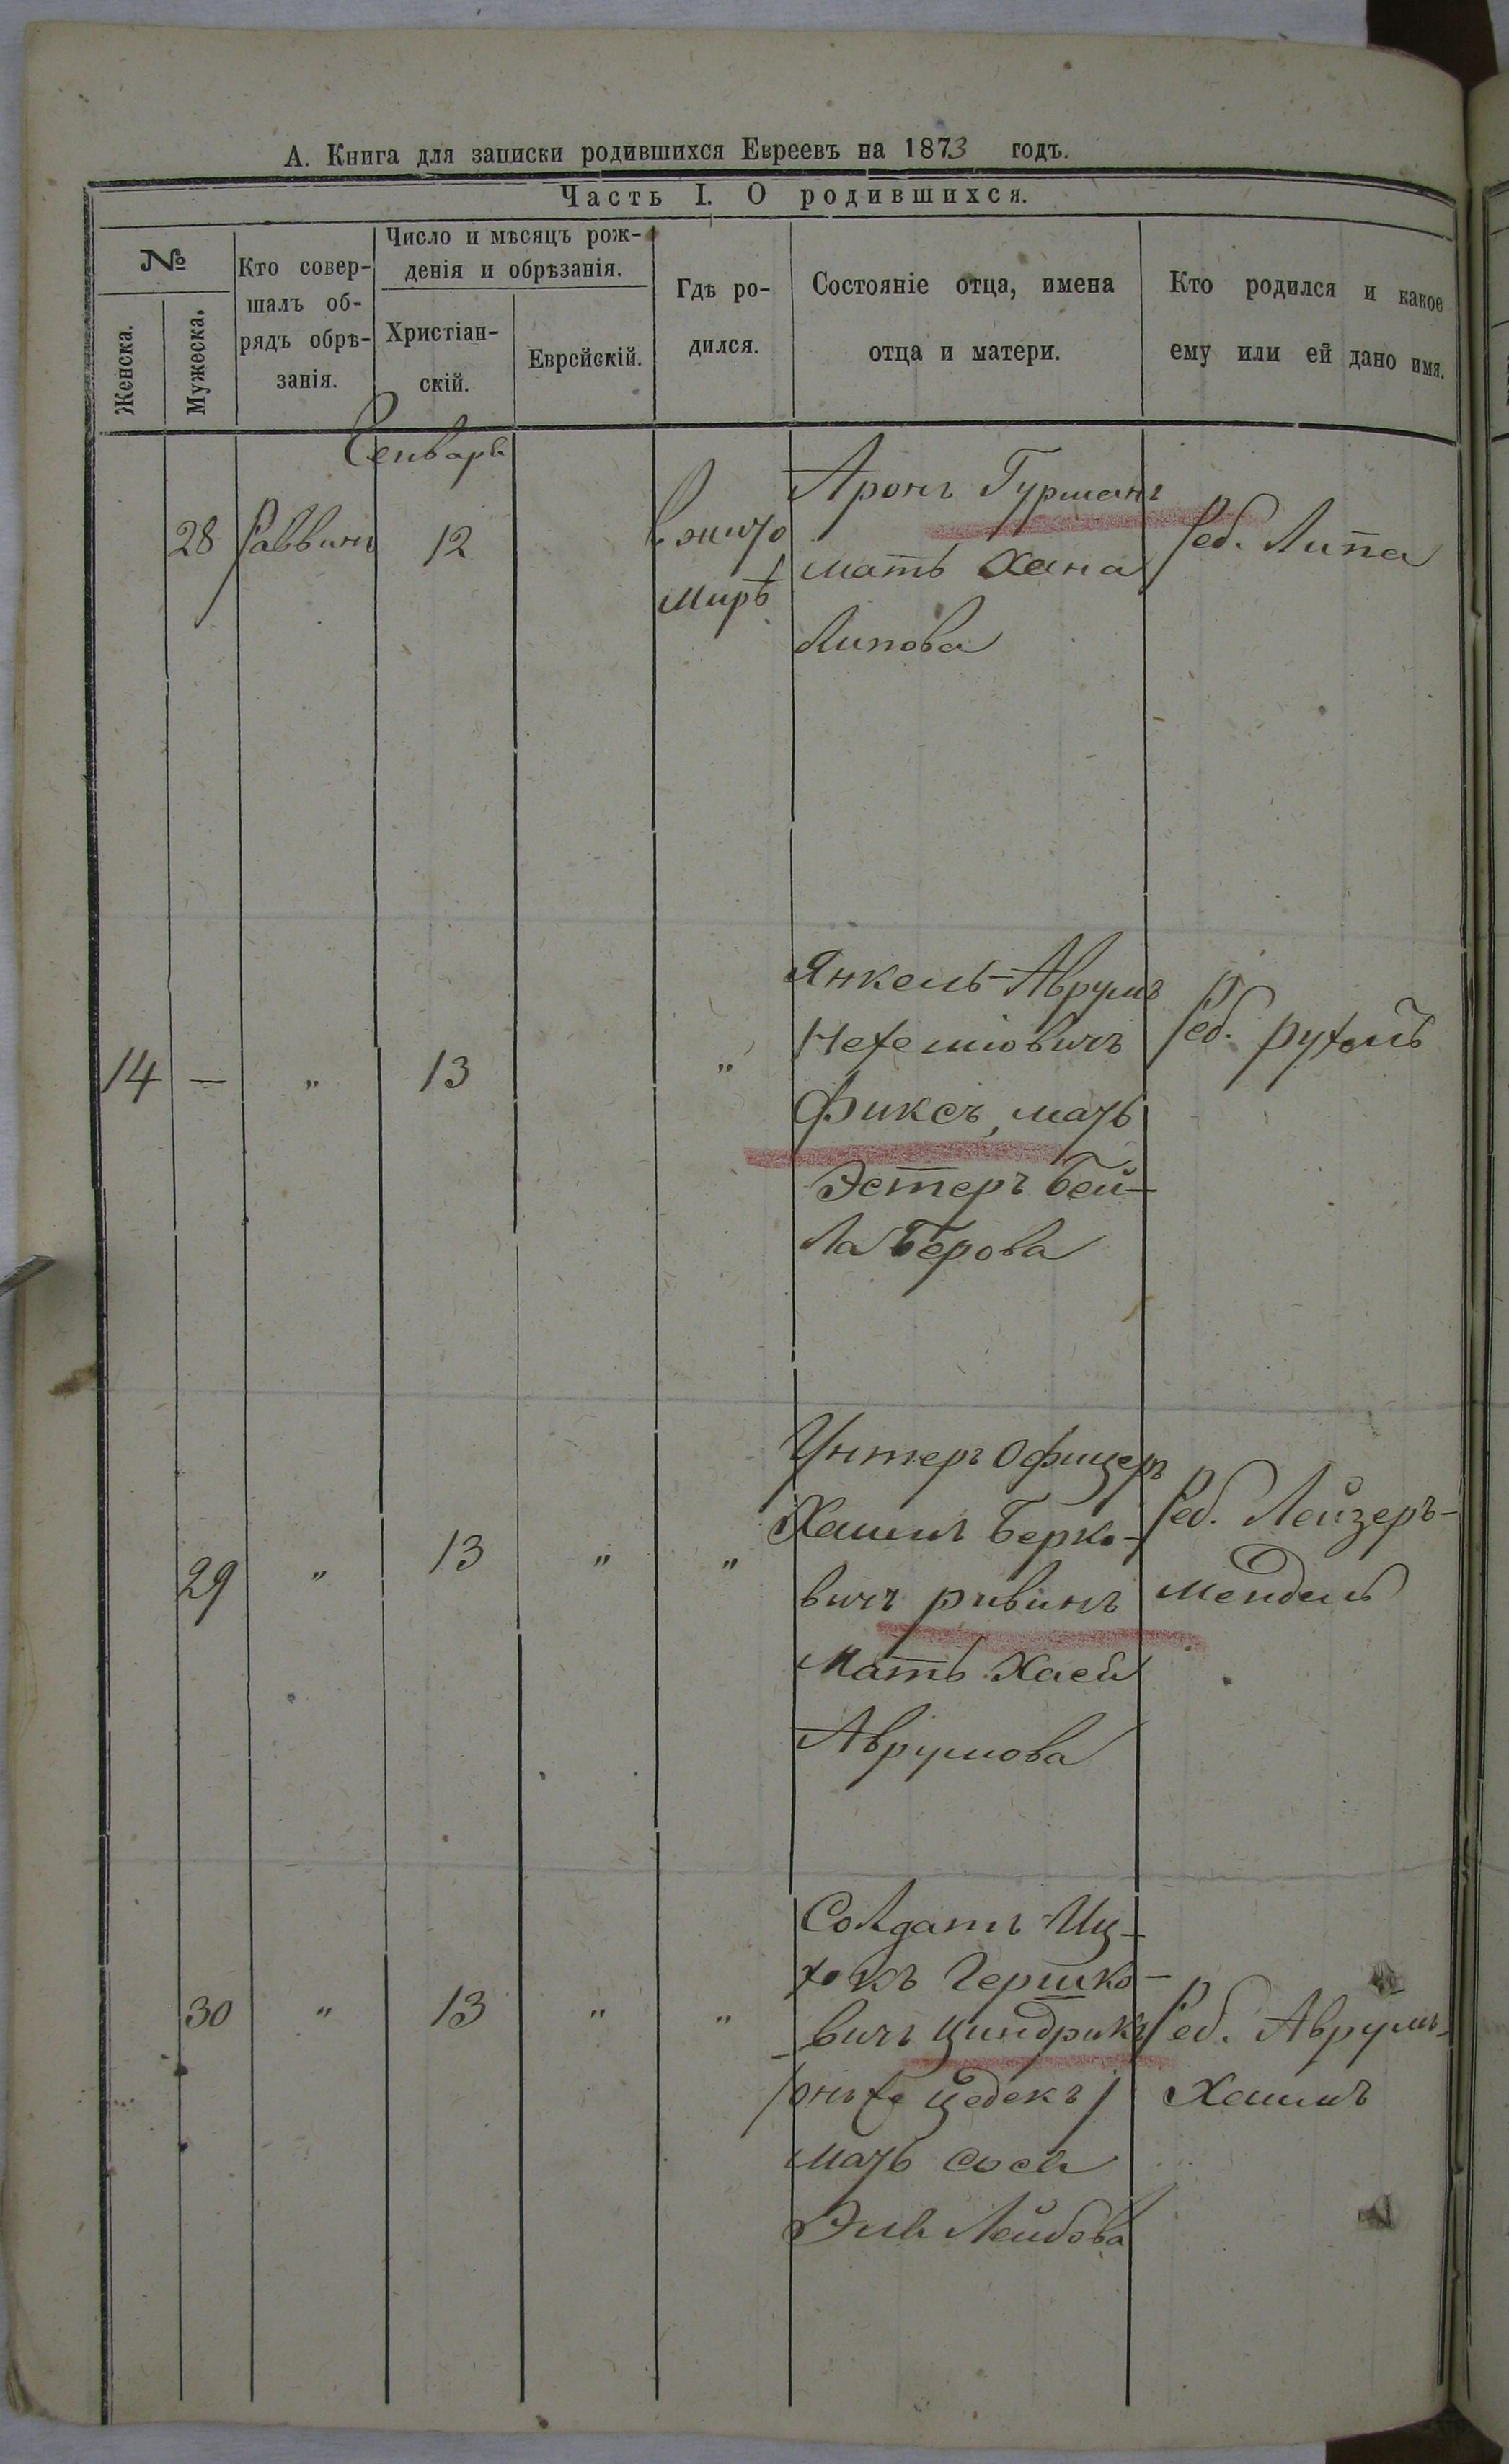 А. Книга для записки родившихся Евреевъ на 1873 годъ.
Часть I. О родившихся.
№
Женска.
Мужеска.
Кто совер-
шалъ об-
рядъ обрѣ-
занія.
Число и мѣсяцъ рож-
денія и обрѣзанія.
Христіан-
скій.
Еврейскій.
Гдѣ ро-
дился.
Состояніе отца, имена
отца и матери.
Кто родился и какое
ему или ей дано имя.
Генварь
28
Раввинъ
12
Мирѣ
Аронъ Гурманъ
мать Хана
Липова
Реб. Липа
14
—
"
13
"
Янкель-Аврумъ
Нехеміовичъ
Фиксъ, мать
Эстеръ Бей-
ла Берова
Реб.
29
"
13
"
"
Унтеръ офицеръ
Хаимъ Берко-
вичъ ривинъ
Мать Хася
Аврумова
Реб. Лейзеръ-
мендель
30
"
13
"
"
Солдатъ Иц-
хокъ Гершко-
вичъ Циндрикъ
мать Сося
Эля Лейбова
Реб. Аврумъ-
Хаимъ